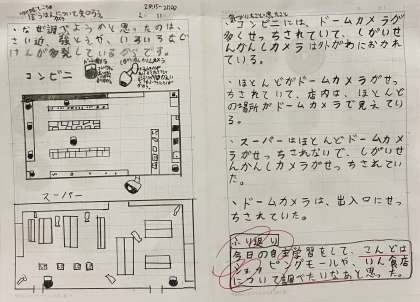 ぼうはんについて知ろう
・なぜ調べようかと思ったのは、
さい近、強とうや、いろいろなじ
けんが多発しているからです。
コンビニ
スーパー
気づいたこと思ったこと
・コンビニには、ドームカメラが
多くせっちされていて、しがいせ
んかんしカメラは外がわにおかれ
ている。
・ほとんどがドームカメラがせっ
ちされていて、店内は、ほとんど
の場所がドームカメラで見えてい
る。
・スーパーはほとんどドームカメ
ラがせっちされないで、しがいせ
んかんしカメラがせっちされてい
た。
・ドームカメラは、出入口にせっ
ちされていた。
ふり返り
今日の自主学習をして、こんどは
ショッピングモールや、いん食店
について調べたいなあと思った。